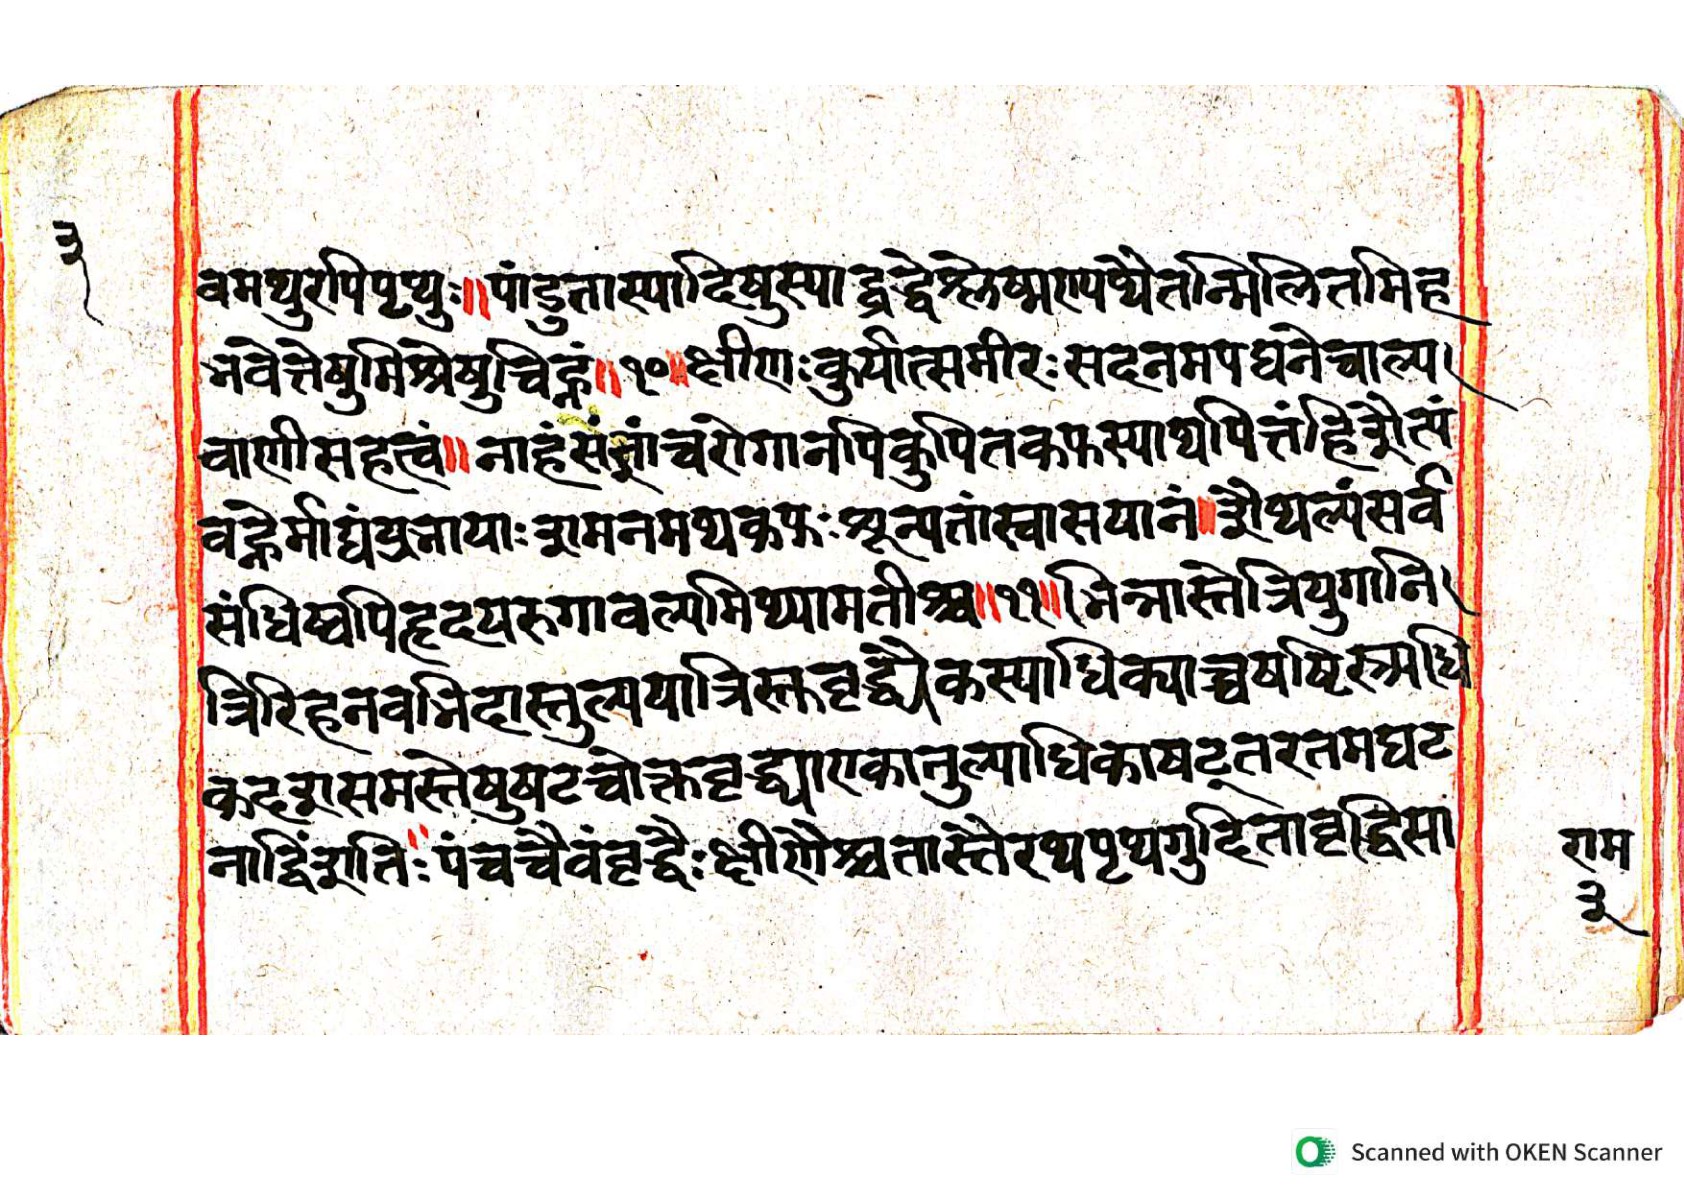 ३
वमथुरपिपृथुः॥पांडुतास्यादिषुस्याद्वृद्धेश्लेष्मण्यथैतन्मिलितमिह
भवेत्तेषुमिश्रेषुचिह्नं॥१०॥क्षीणःकुर्यात्समीरःसदनमपघनेचाल्प
वाणीसहत्वं॥नाहंसंज्ञांचरोगानपिकुपितकफस्याथपित्तंहिशैत्यं
वह्नेर्मांद्यंप्रभायाःशमनमथकफःशून्यतांस्वासयानं॥शैथल्यंसर्व
संधिष्वपिहृदयरुगावल्यमिथ्यामतीश्च॥११॥भिन्नास्तेत्रियुगानि
त्रिरिहनवभिदास्तुल्ययात्रिस्क्तवृद्ध्यैकस्याधिक्याच्चषष्टिरुत्र्मधि
कदशसमस्तेषुषटचोक्तवृद्ध्याएकातुल्याधिकाषट्तरतमघट
नाद्विंशतिःपंचचैवंवृद्धैःक्षीणैश्चतास्तैरथपृथगुदितावृद्धिसा
राम
३
Scanned with OKEN Scanner